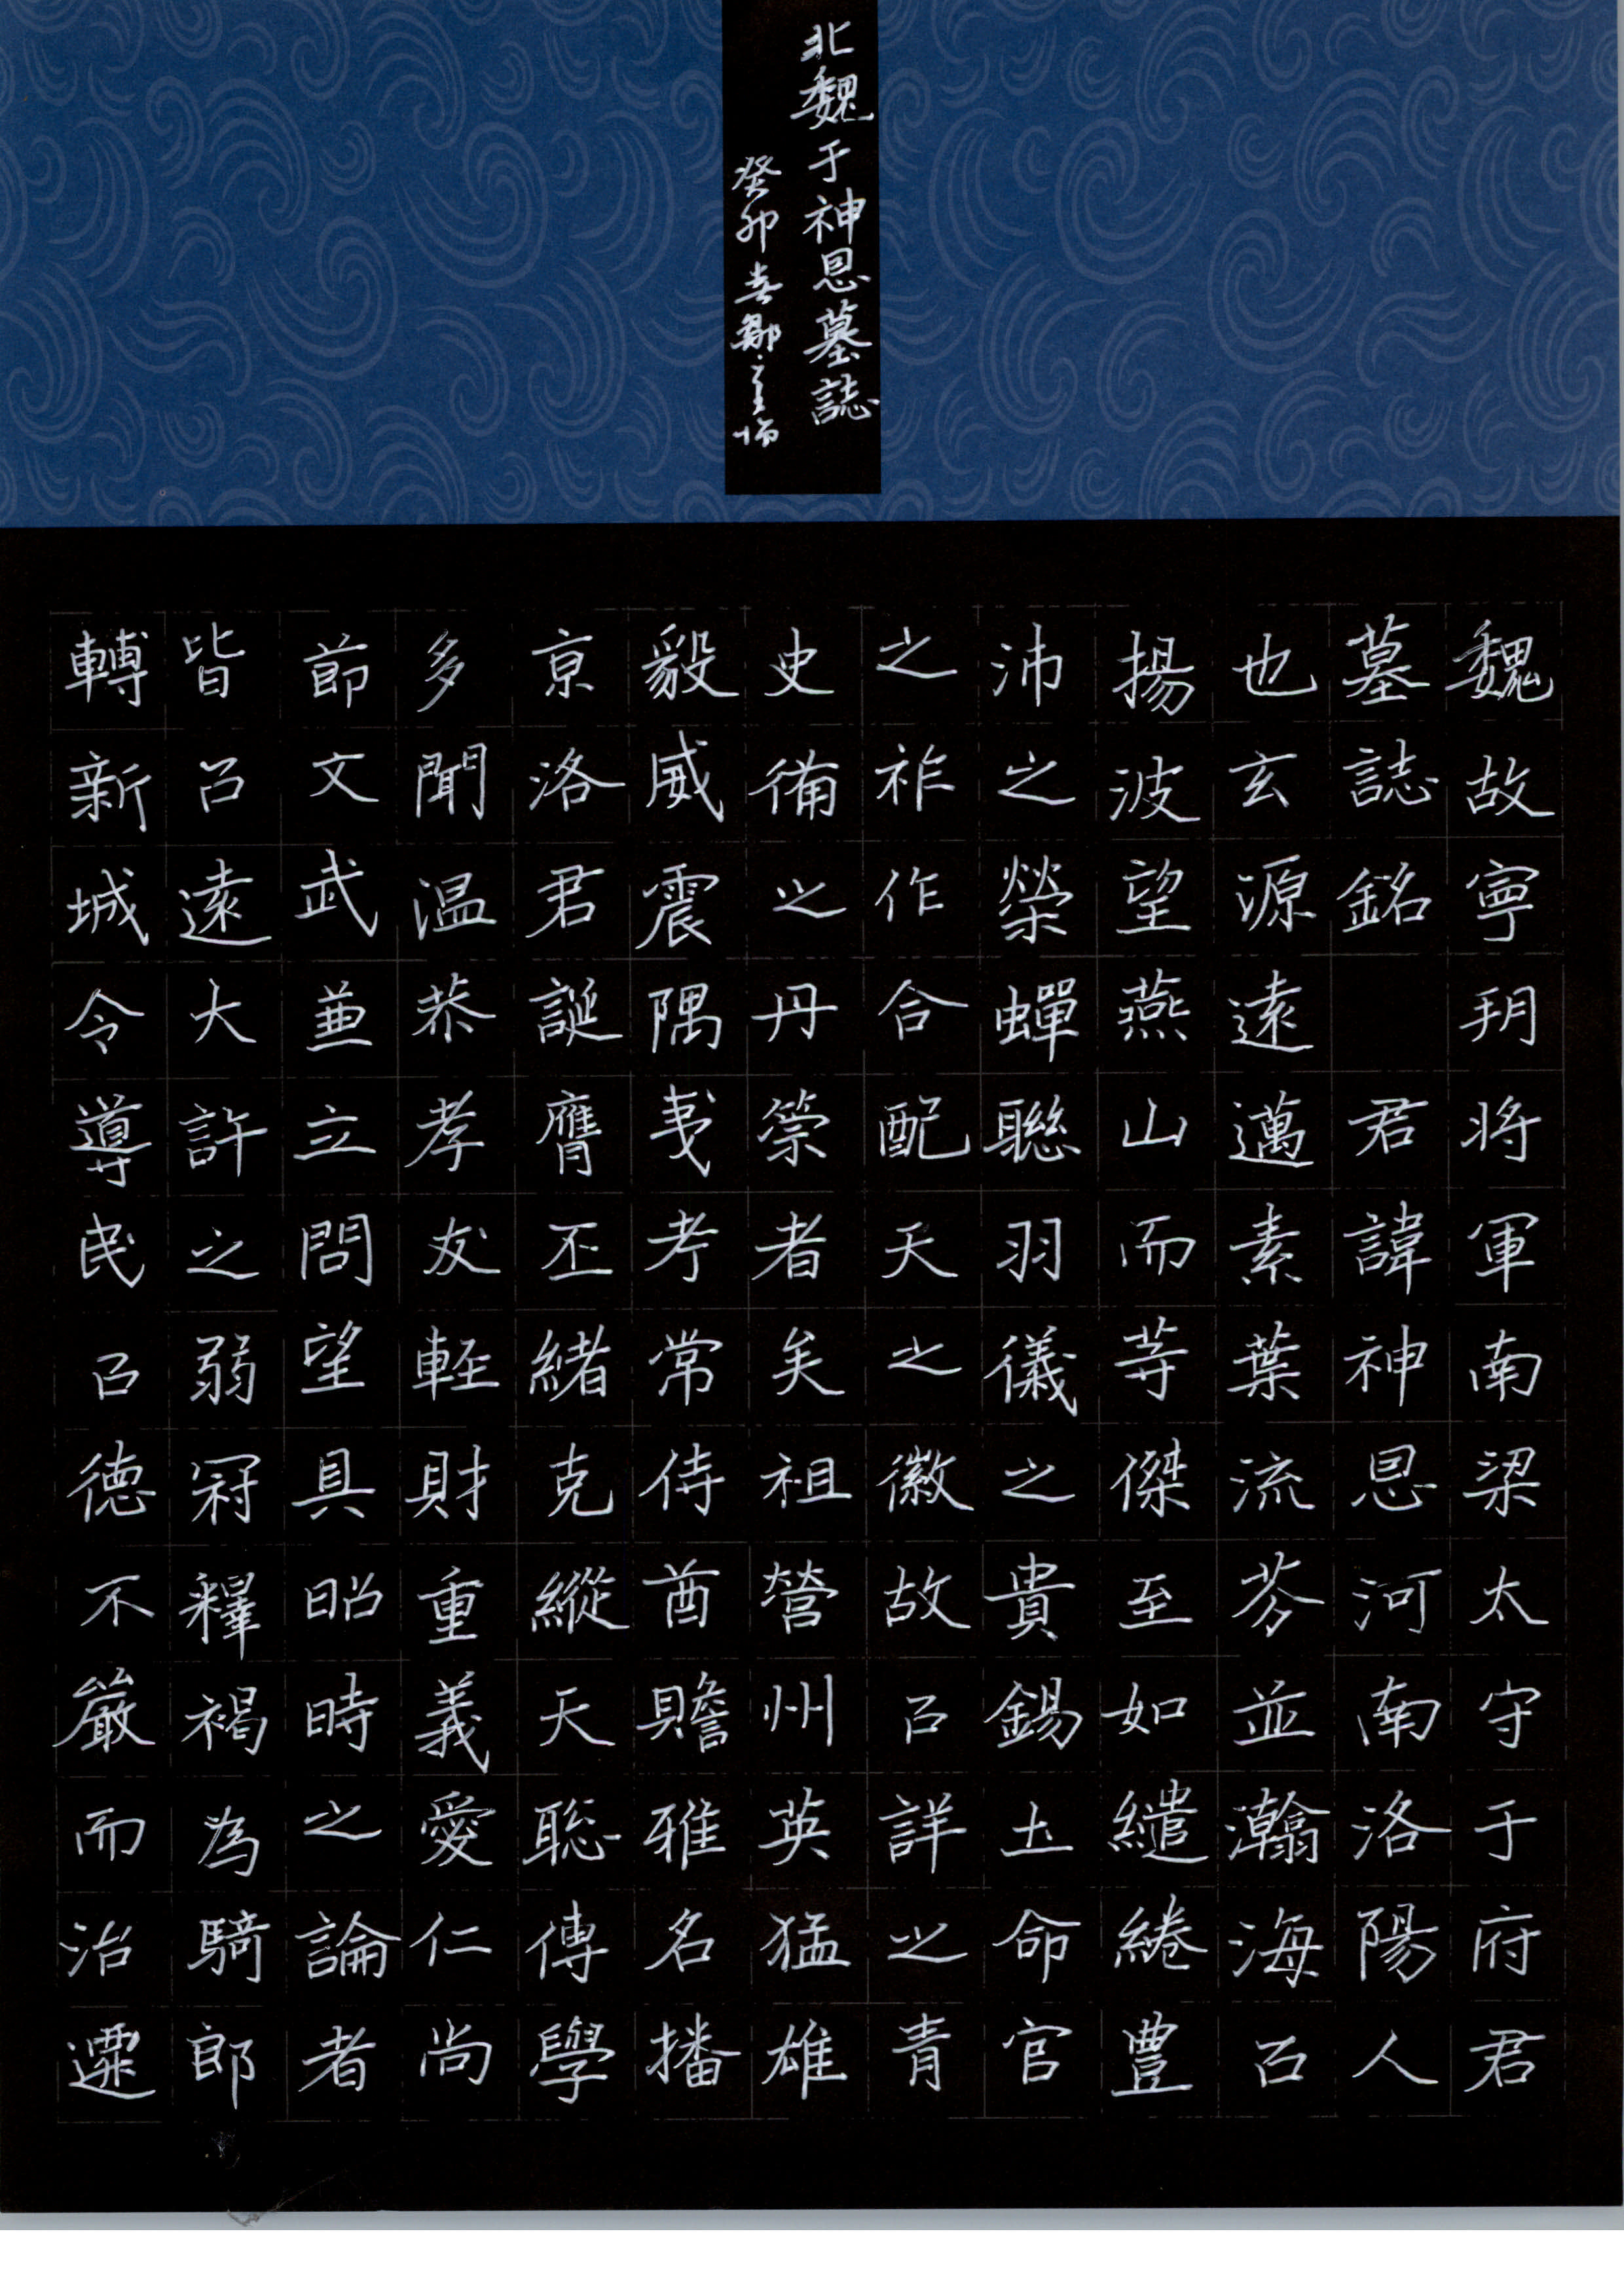 北魏于神恩墓誌
癸卯春鄒
魏故寧朔將軍南梁太守于府君
墓誌銘 君諱神恩河南洛陽人
也玄源遠邁素葉流芬並瀚海㠯
揚波望燕山而等傑至如繾綣豊
沛之榮蟬聯羽儀之貴錫土命官
之祚作合配天之徽故㠯詳之青
史備之丹篆者矣祖營州英猛雄
毅威震隅夷考常侍酋贍雅名播
京洛君誕膺丕緒克縱天聡傳學
多聞温恭孝友輕財重義愛仁尚
節文武兼立問望具昭時之論者
皆㠯遠大許之弱冠釋褐為騎郎
轉新城令導民㠯德不嚴而治遷